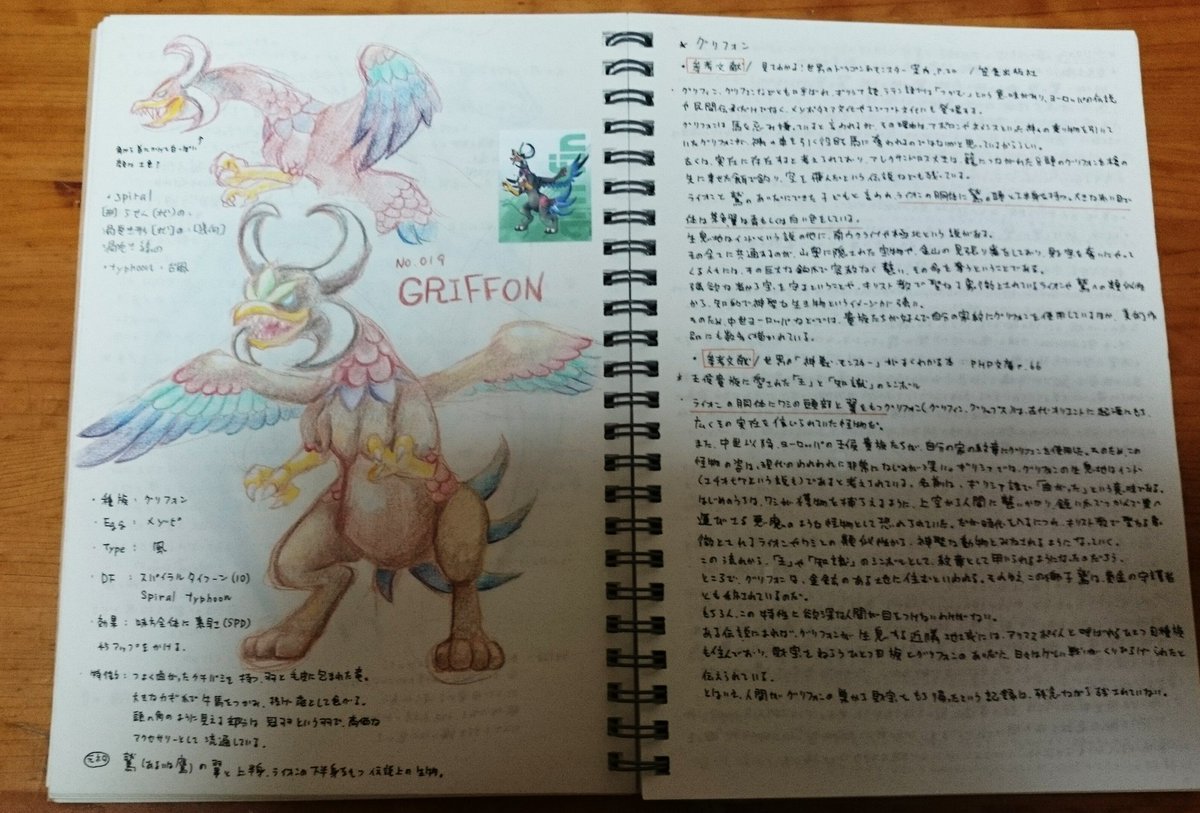 ・spiral
[形] らせん(状)の、
渦巻き形(状)の
・typhoon : 台風
No.019
GRIFFON
・種族 : グリフォン
・Egg :
・Type : 風
・DF : スパイラルタイフーン(10)
Spiral typhoon
・効果 : 味方全体に素早(SPD)
さアップをかける。
・特徴 : つよく曲がったクチバシを持つ、羽と毛皮に包まれた竜。
大きなカギ爪で牛馬をつかみ、
頭の角のように見える部分は冠羽という羽で、高価な
アクセサリーとして流通している。
鷲(あるいは鷹)の翼と上半身、ライオンの下半身をもつ伝説上の生物。
★ グリフォン
・参考文献/ 見てわかる!世界のドラゴン&モンスター案内 P.20 /笠倉出版社
グリフィン、グリプスなどとも呼ばれ、ギリシア語、ラテン語では「つかむ」という意味があり、ヨーロッパの伝説
や民間伝承だけでなく、メソポタミアやエジプトなどにも登場する。
グリフォンは馬を忌み嫌っていると言われるが、その理由はアポロンやネメシスといった神々の乗り物を引いて
いたグリフォンが、神々の車を引く役目を馬に奪われるのではないかと思っているからしい。
古くは、実在に存在すると考えられており、アレクサンドロス大王は、鎖につながれた8頭のグリフォンを槍の
先に刺せた餌で釣り、空を運んだという伝説なども残っている。
ライオンと鷲のあいだにできた子どもと言われ、ライオンの胴体に鷲の頭と
体は
生息地はインドという説の他に、南ウクライナや極北という説がある。
その全てに共通するのが、山奥に隠された宝物や、金山の見張り番をしており、財宝を奪いにやって
くる人々には、その巨大な鉤爪で容赦なく襲い、その命を奪うということである。
強欲な者から宝を守るということや、キリスト教で聖なる象徴とされているライオンや鷲への類似性
から、知的で神聖な生き物というイメージが強い。
そのため、中世ヨーロッパなどでは、貴族たちが好んで自分の家紋にグリフォンを使用しているほか、美術作
品にも数多く描かれている。
・参考文献/ 世界の「神獣・モンスター」がよくわかる本 : PHP文庫 P.66
★ 王侯貴族に愛された「王」と「知識」のシンボル
ライオンの胴体にワシの頭部と翼をもつグリフォン(グリフィン、グリュプス)は、古代オリエントに起源をもち、
広くその実在を信じられていた怪物だ。
また、中世以降、ヨーロッパの王侯貴族たちが、自分の家の紋章にグリフォンを使用した。そのため、この
怪物の姿は、現代のわれわれに非常になじみが深い。ギリシアでは、グリフォンの生息地はインド
(エチオピアという説も)であると考えられている。名前は、ギリシア語で「曲がった」という意味である。
はじめのうちは、ワシが獲物を捕らえるように、上空から人間に襲いかかり、鋭い爪でつかんで巣へ
運び去る悪魔のような怪物として恐れられていた。だが時代をへるにつれ、キリスト教で聖なる象
徴とされるライオンやワシとの類似性から、神聖な動物とみなされるようになっていく。
この流れから、「王」や「知識」のシンボルとして、紋章として用いられるようになったのだろう。
ところで、グリフォンは、金鉱のある土地に住むといわれる。それゆえ、この獅子鷲は、黄金の守護者
とも称されているのだ。
もちろん、この特性に欲深な人間が目をつけないわけがない。
ある伝説によれば、グリフォンが生息する近隣地域には、アリマスポイ人と呼ばれるひとつ目種族
も住んでおり、財宝をねらうひとつ目族とグリフォンのあいだで、日々はげしい戦いがくりひろげられたと
伝えられている。
とはいえ、人間がグリフォンの巣から財宝をもち帰ったという記録は、残念ながら残されていない。